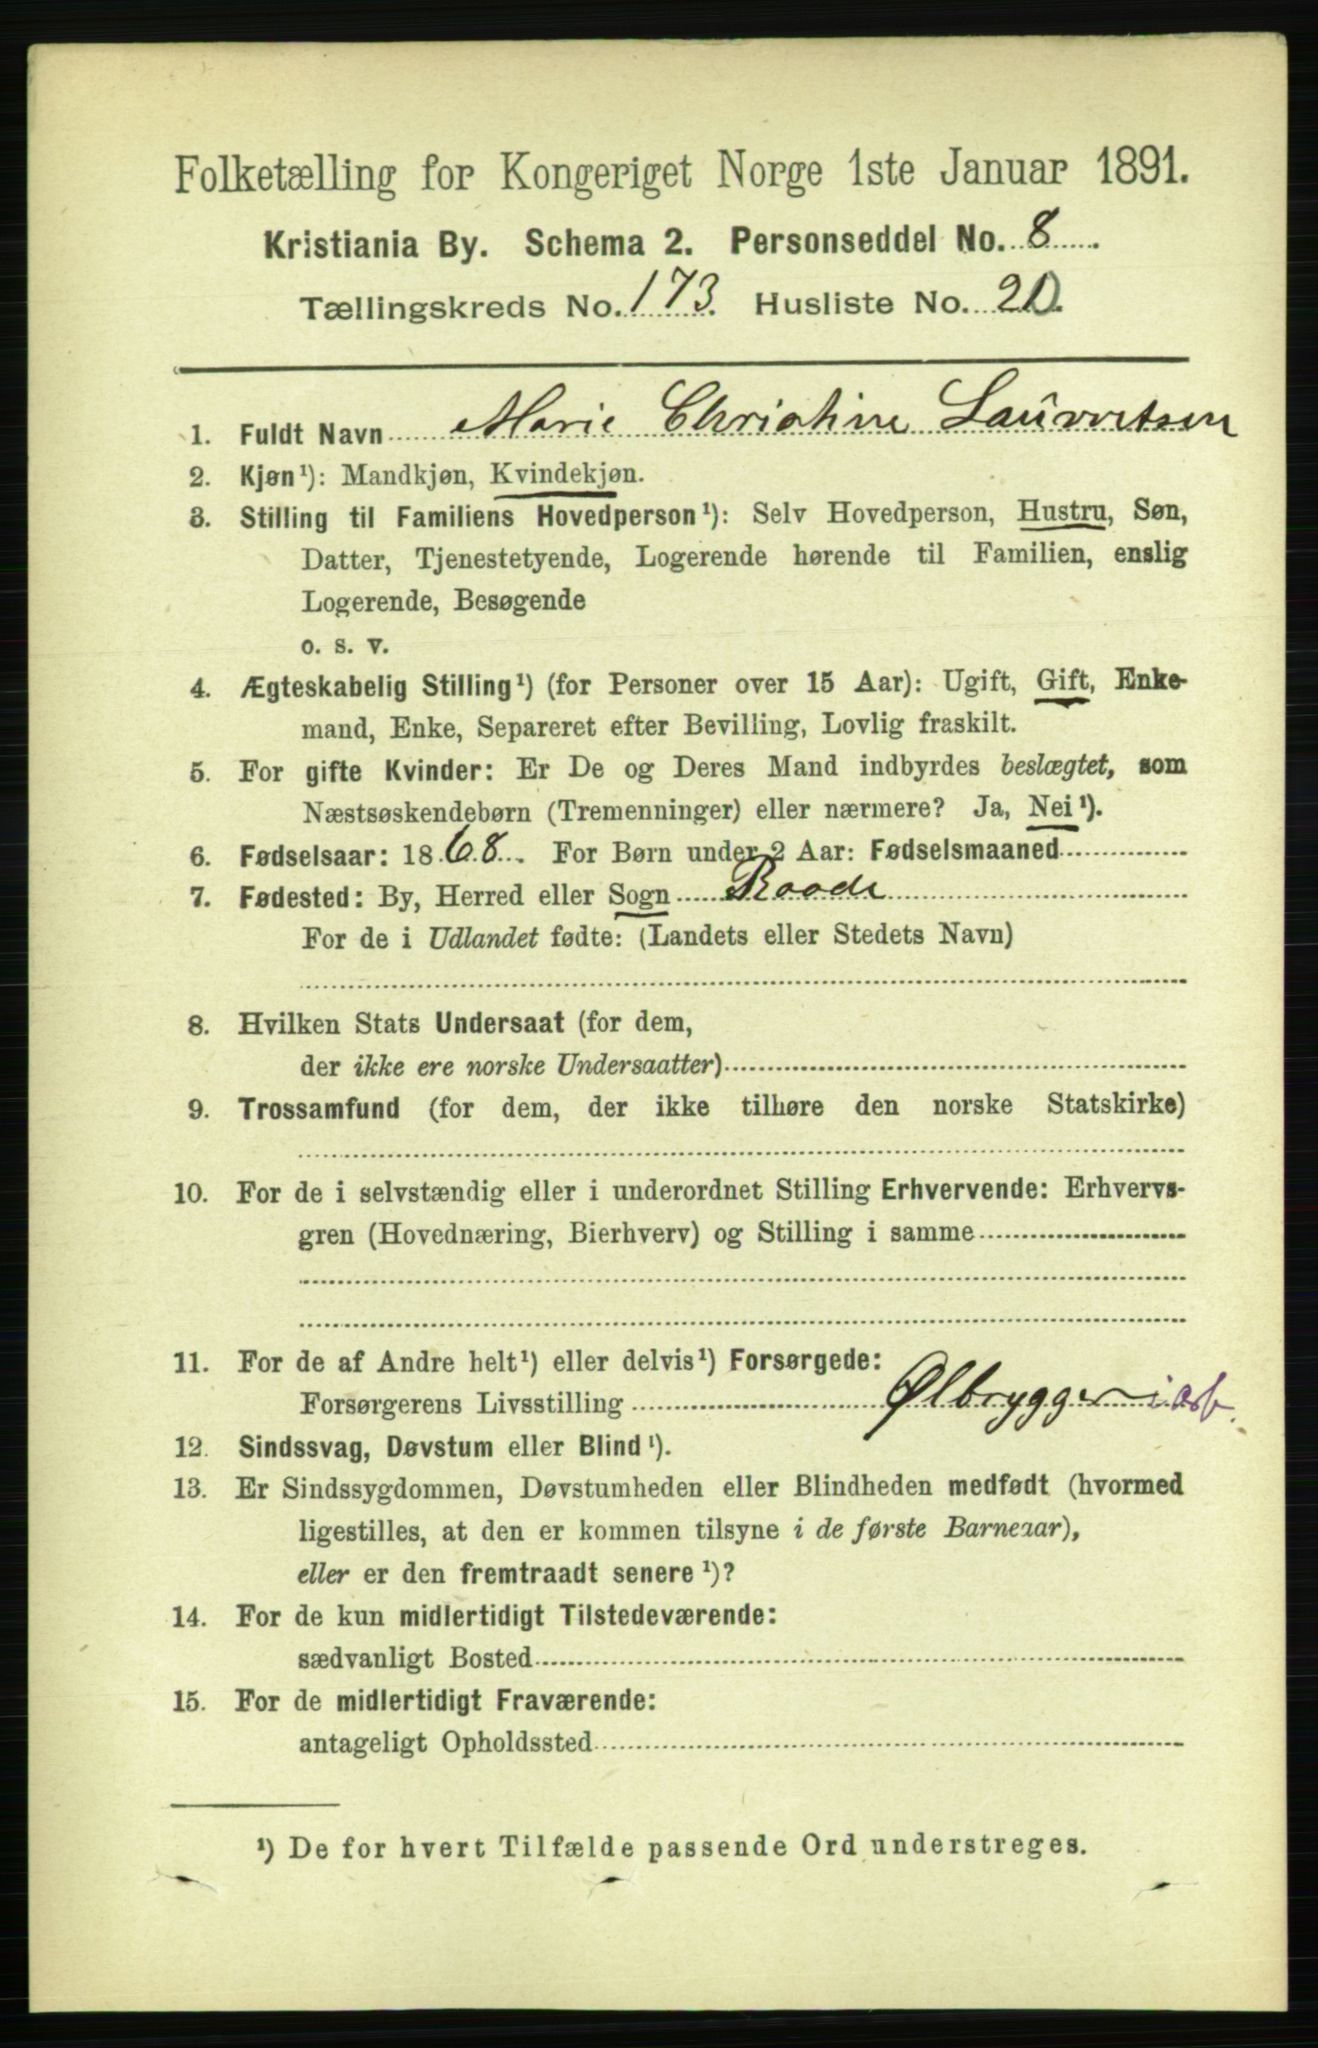 Folketælling for Kongeriget Norge 1ste Januar 1891.
Kristiania By. Schema 2. Personseddel No. 8
Tællingskreds No. 173. Husliste No. 20.
1. Fuldt Navn Marie Christine Lauvretsen
2. Kjøn¹): Mandkjøn, Kvindekjøn.
3. Stilling til Familiens Hovedperson¹): Selv Hovedperson, Hustru, Søn,
Datter, Tjenestetyende, Logerende hørende til Familien, enslig
Logerende, Besøgende
o. s. v.
4. Ægteskabelig Stilling¹) (for Personer over 15 Aar): Ugift, Gift, Enke-
mand, Enke, Separeret efter Bevilling, Lovlig fraskilt.
5. For gifte Kvinder: Er De og Deres Mand indbyrdes beslægtet, som
Næstsøskendebørn (Tremenninger) eller nærmere? Ja, Nei¹).
6. Fødselsaar: 1868. For Børn under 2 Aar: Fødselsmaaned
7. Fødested: By, Herred eller Sogn Raade
For de i Udlandet fødte: (Landets eller Stedets Navn)
8. Hvilken Stats Undersaat (for dem,
der ikke ere norske Undersaatter)
9. Trossamfund (for dem, der ikke tilhøre den norske Statskirke)
10. For de i selvstændig eller i underordnet Stilling Erhvervende: Erhvervs-
gren (Hovednæring, Bierhverv) og Stilling i samme
11. For de af Andre helt¹) eller delvis¹) Forsørgede:
Forsørgerens Livsstilling Ølbryggeriarb.
12. Sindssvag, Døvstum eller Blind¹).
13. Er Sindssygdommen, Døvstumheden eller Blindheden medfødt (hvormed
ligestilles, at den er kommen tilsyne i de første Barneaar),
eller er den fremtraadt senere¹)?
14. For de kun midlertidigt Tilstedeværende:
sædvanligt Bosted
15. For de midlertidigt Fraværende:
antageligt Opholdssted
¹) De for hvert Tilfælde passende Ord understreges.